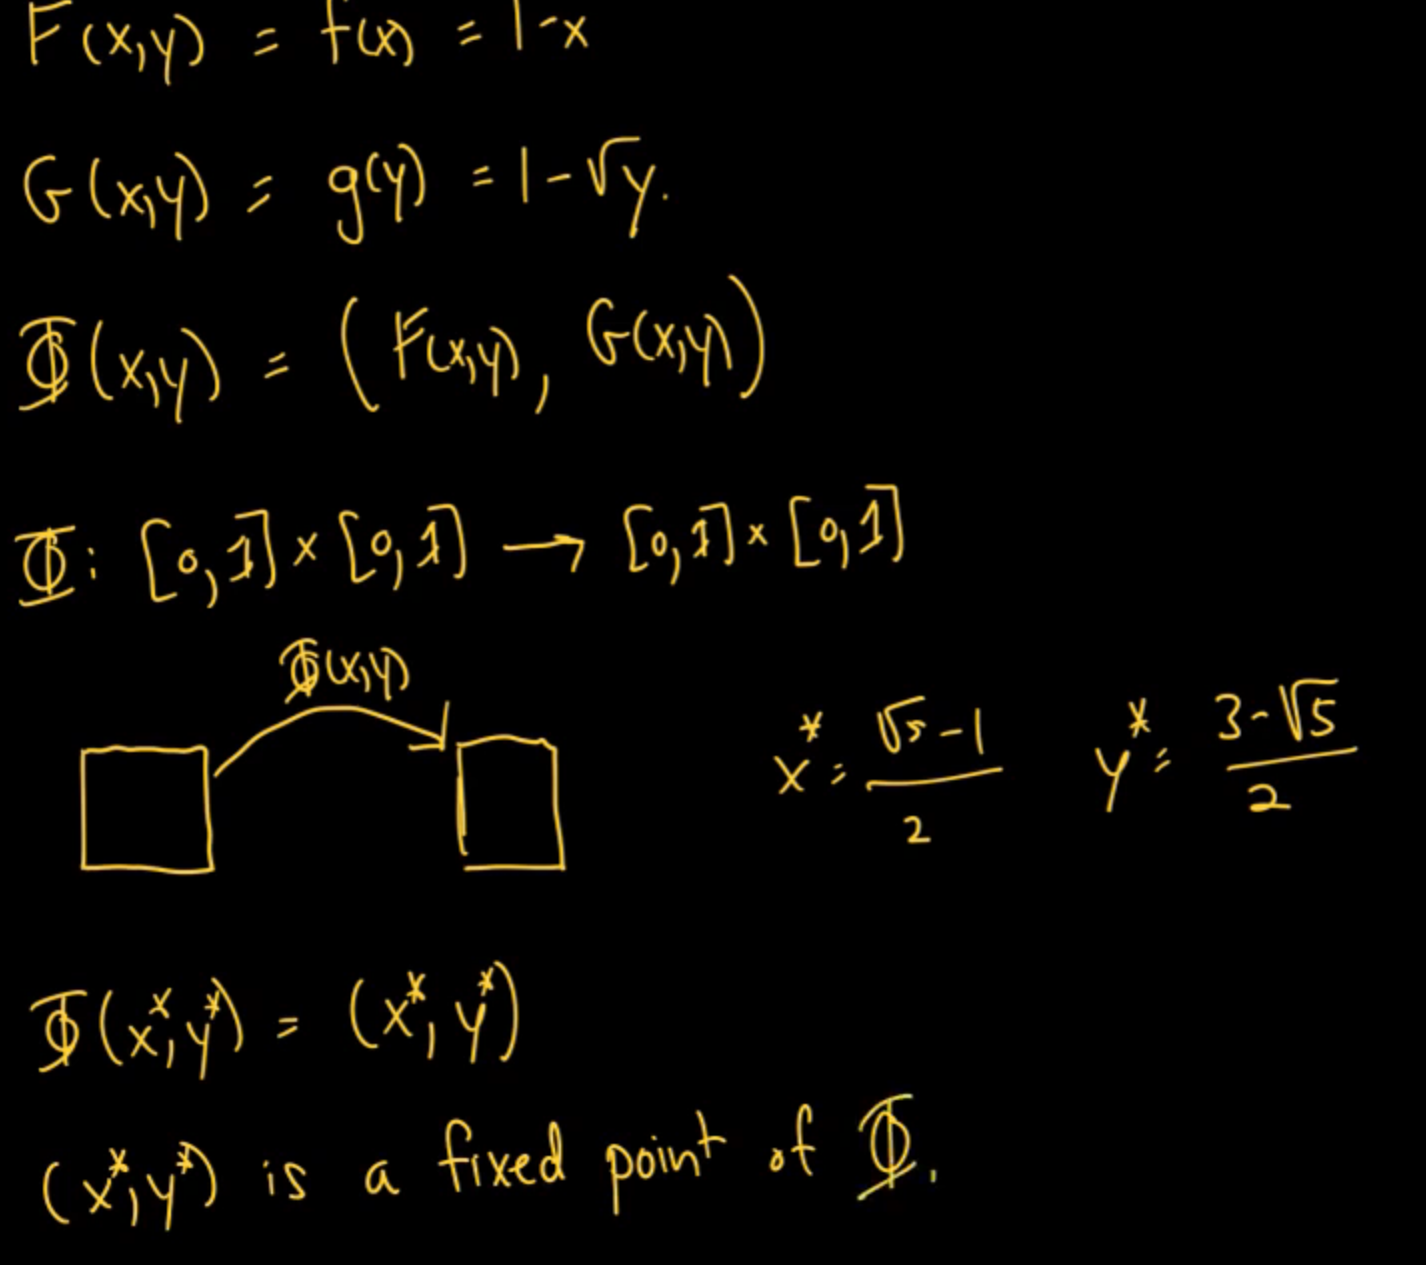 F(x,y) = f(x) = 1-x
G(x,y) = g(y) = 1-√y.
Φ(x,y) = (F(x,y), G(x,y))
Φ: [0,1]×[0,1] → [0,1]×[0,1]
Φ(x,y)
x* = (√5-1)/2 y* = (3-√5)/2
Φ(x*,y*) = (x*,y*)
(x*,y*) is a fixed point of Φ.